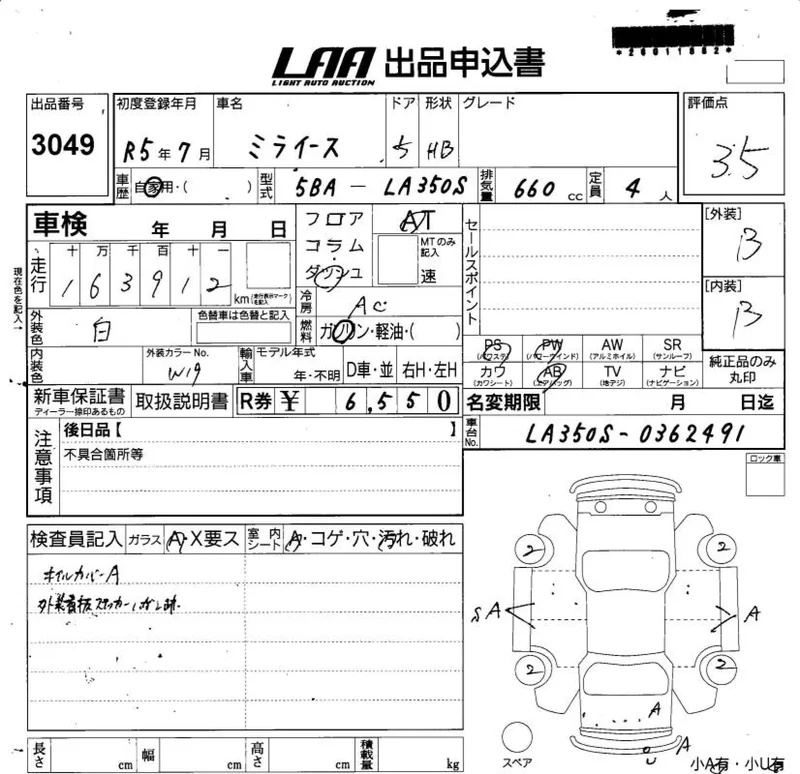 LAA 出品申込書
LIGHT AUTO AUCTION
出品番号 初度登録年月 車名 ドア 形状 グレード 評価点
3049 R5年7月 ミライース 5 HB 3.5
車歴 自家用・( ) 型式 5BA - LA350S 排気量 660 cc 定員 4 人
車検 年 月 日
フロア
コラム
ダッシュ
AT
MTのみ記入
速
セールスポイント
[外装]
B
[内装]
B
現在色を記入→
走行 十 万 千 百 十 一
1 6 3 9 1 2 km (走行表示マークを記入)
冷房 AC
燃料 ガソリン・軽油・( )
外装色 白 色替車は色替と記入
内装色 外装カラーNo. W19
輸入車 モデル年式 年・不明 D車・並 右H・左H
PS (パワステ) PW (パワーウインド) AW (アルミホイル) SR (サンルーフ)
カワ (カワシート) AB (エアバッグ) TV (地デジ) ナビ (ナビゲーション)
純正品のみ
丸印
新車保証書 ディーラー捺印あるもの 取扱説明書 R券 ¥ 6,550 名変期限 月 日迄
車台No. LA350S-0362491
注意事項
後日品【 】
不具合箇所等
ロック車
検査員記入 ガラス A・X要ス 室内シート A・コゲ・穴・汚れ・破れ
ホイルカバーA
外装看板ステッカーハガし跡
2 2
SA A
2 2
A
A
スペア
小A有・小U有
長さ cm 幅 cm 高さ cm 積載量 kg